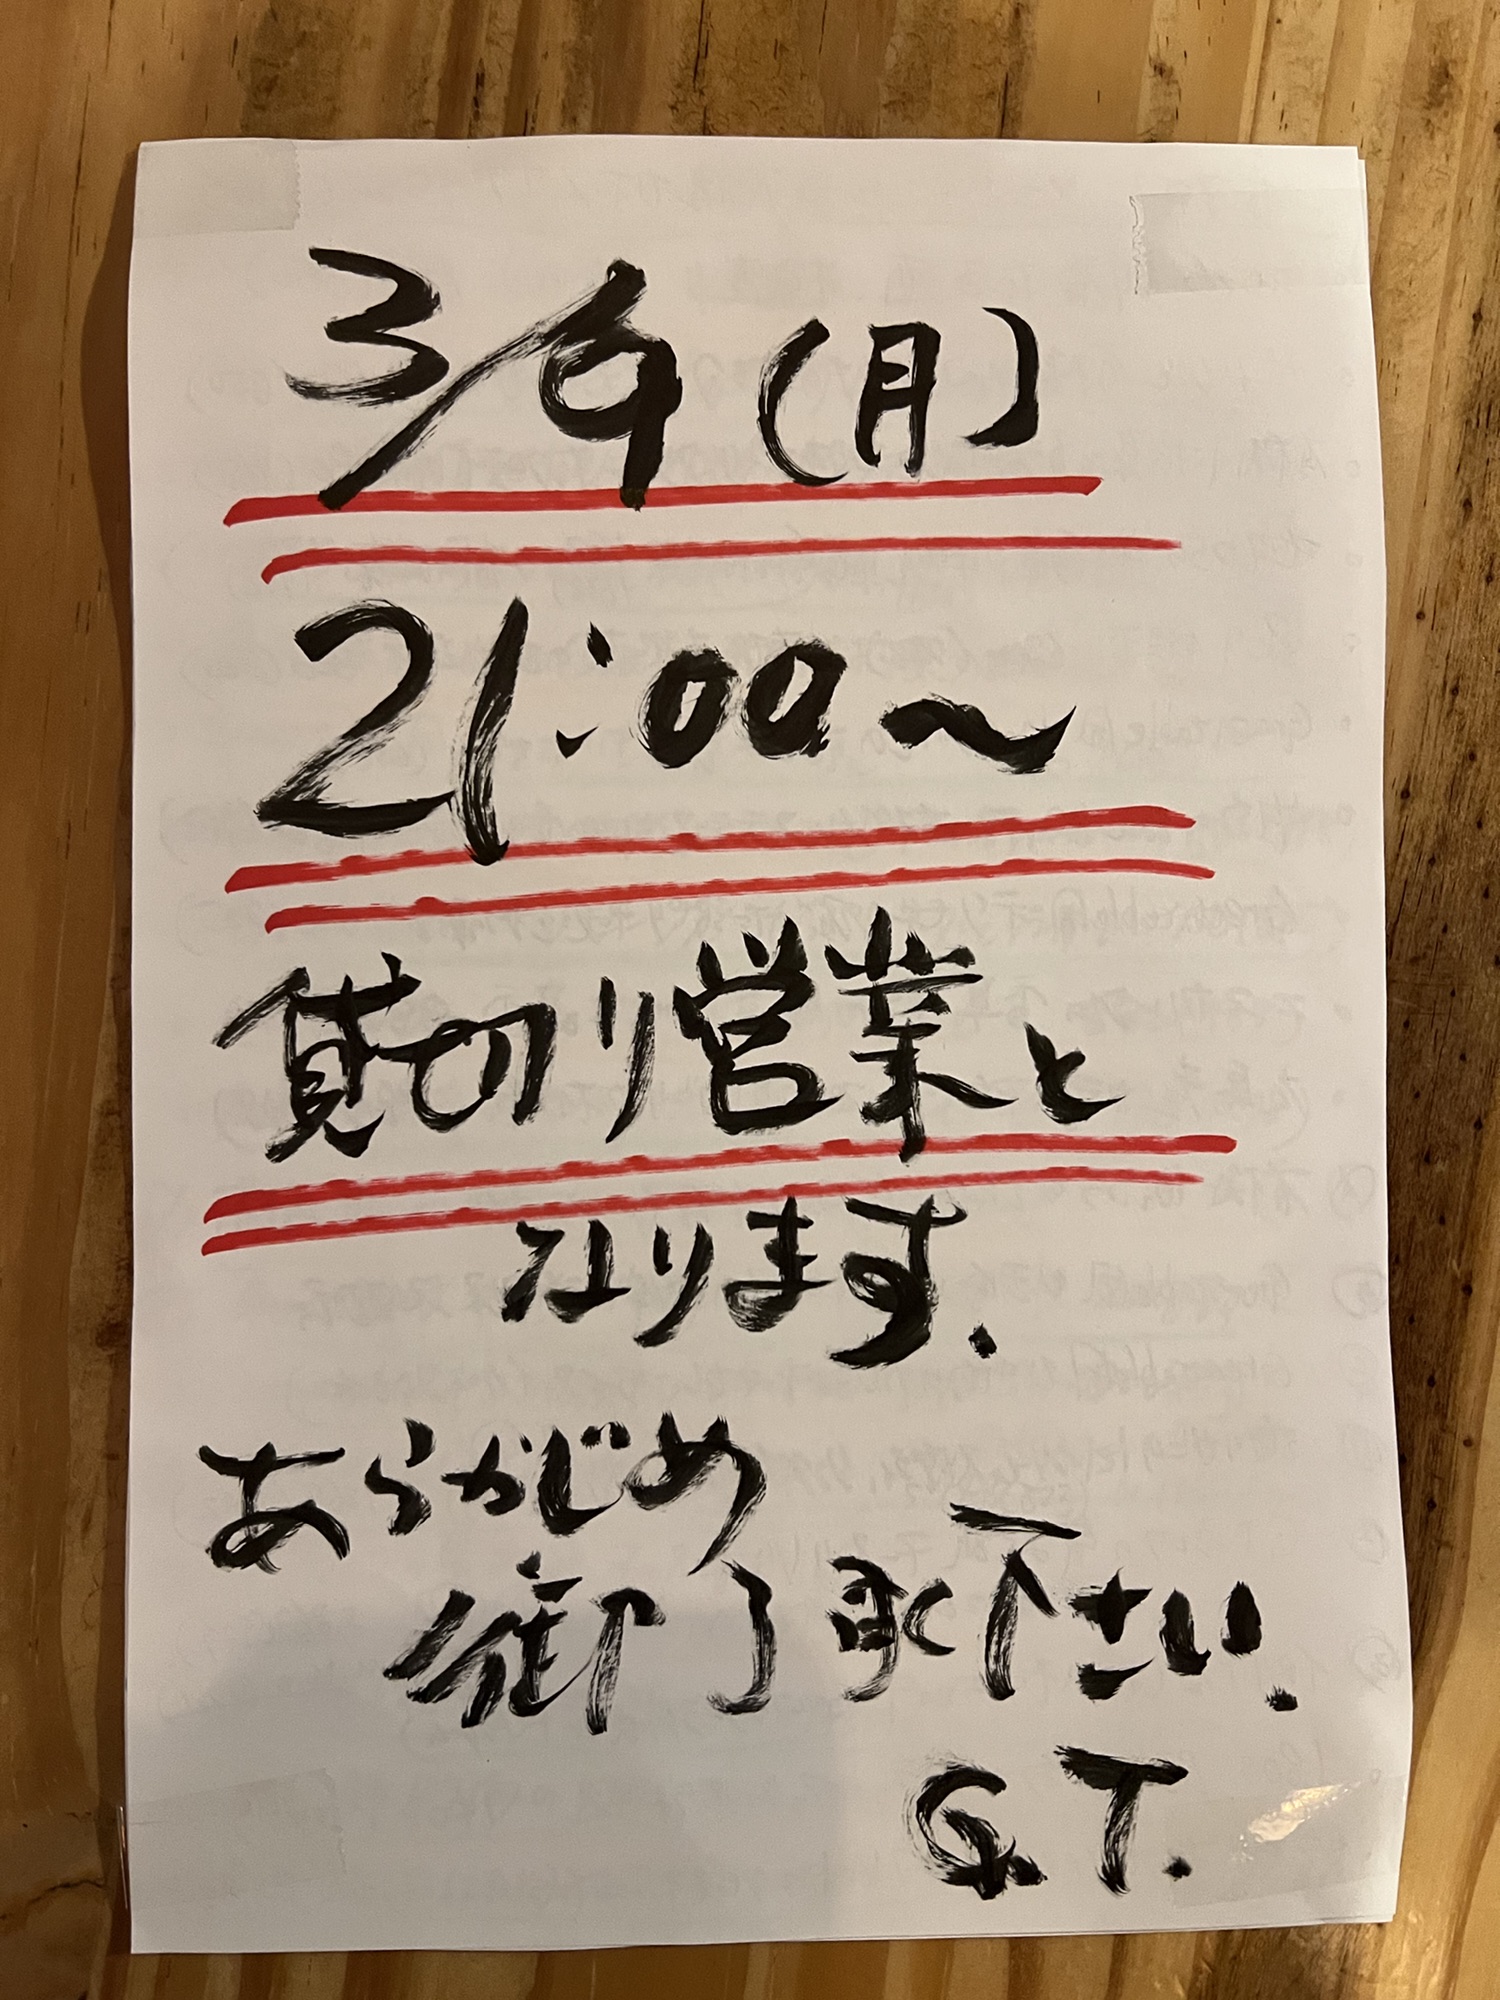 3/9(月)
21:00～
貸切り営業と
なります.
あらかじめ
御了承下さい.
G.T.